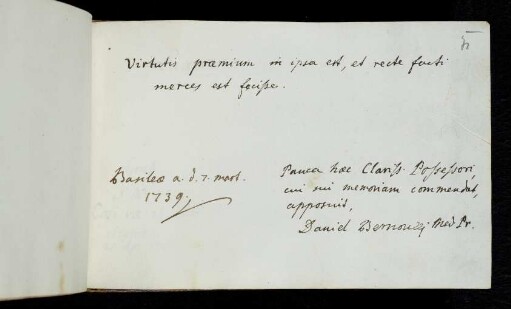 Virtutis præmium in ipsa est, et recte facti
merces est fecisse.
Basileæ a. d. 7. mart.
1739.
Pauca hæc Clariss. Possessori,
cui sui memoriam commendat,
apposuit,
Daniel Bernoulli Med. Pr.